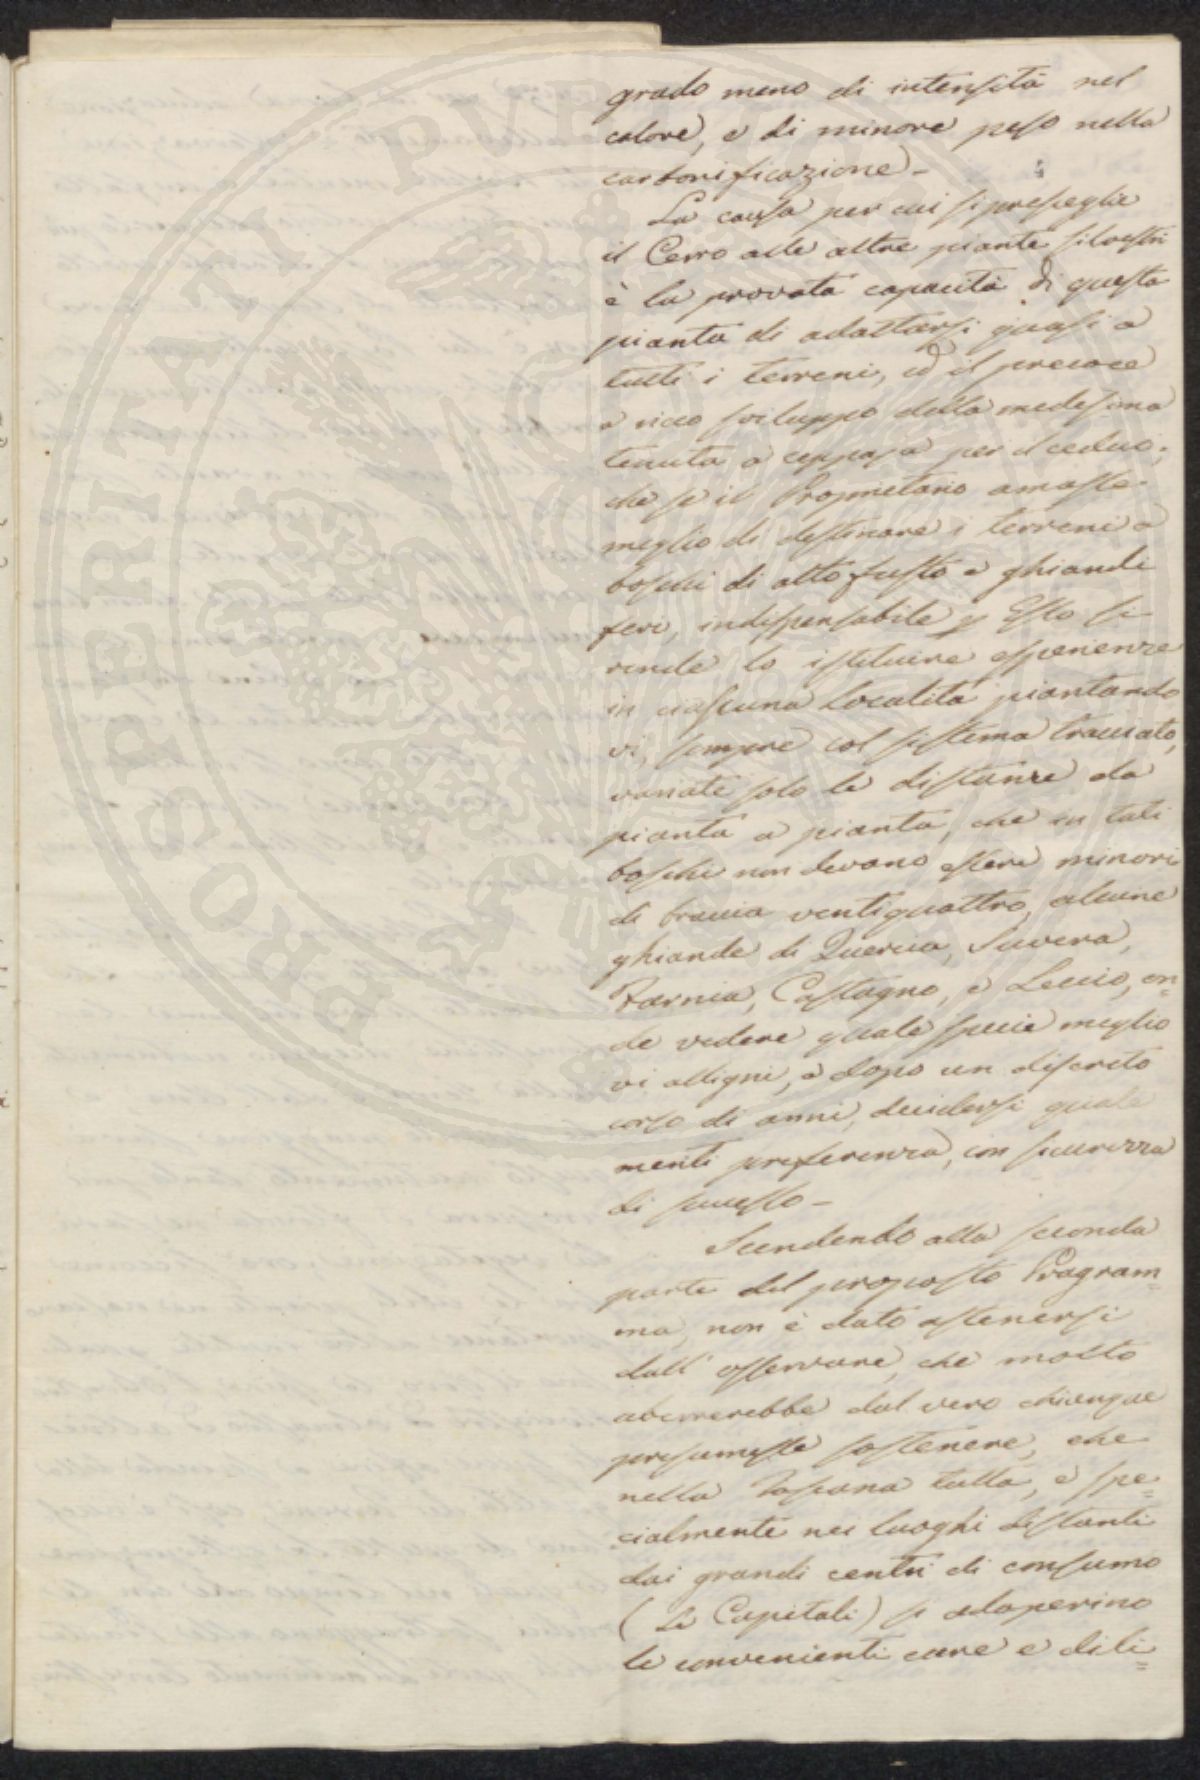 grado meno di intensità nel
calore, e di minore peso nella
carbonificazione -
La causa per cui si presceglie
il Cerro alle altre piante silvestri
è la provata capacità di questa
pianta di adattarsi quasi a
tutti i terreni, ed il precoce
e ricco sviluppo della medesima
tenuta a ceppaja per il ceduo;
che se il Proprietario amasse
meglio di destinare i terreni a
boschi di alto fusto e ghiandi
feri, indispensabile p Esso si
rende lo istituire esperienze
in ciascuna Località piantando
vi, sempre col sistema tracciato,
variate solo le distanze da
pianta a pianta, che in tali
boschi non devano essere minori
di braccia ventiquattro, alcune
ghiande di Quercia, Suvera,
Farnia, Castagno, e Leccio, on=
de vedere quale specie meglio
vi alligni, e dopo un discreto
corso di anni, decidersi quale
meriti preferenza, con sicurezza
di successo -
Scendendo alla seconda
parte del proposto Program=
ma, non è dato astenersi
dall' osservare, che molto
aberrerebbe dal vero chiunque
presumesse sostenere, che
nella Toscana tutta, e spe=
cialmente nei luoghi distanti
dai grandi centri di consumo
(Le Capitali) si adoperino
le convenienti cure e dili=
PROSPERITATI PVBLICAE